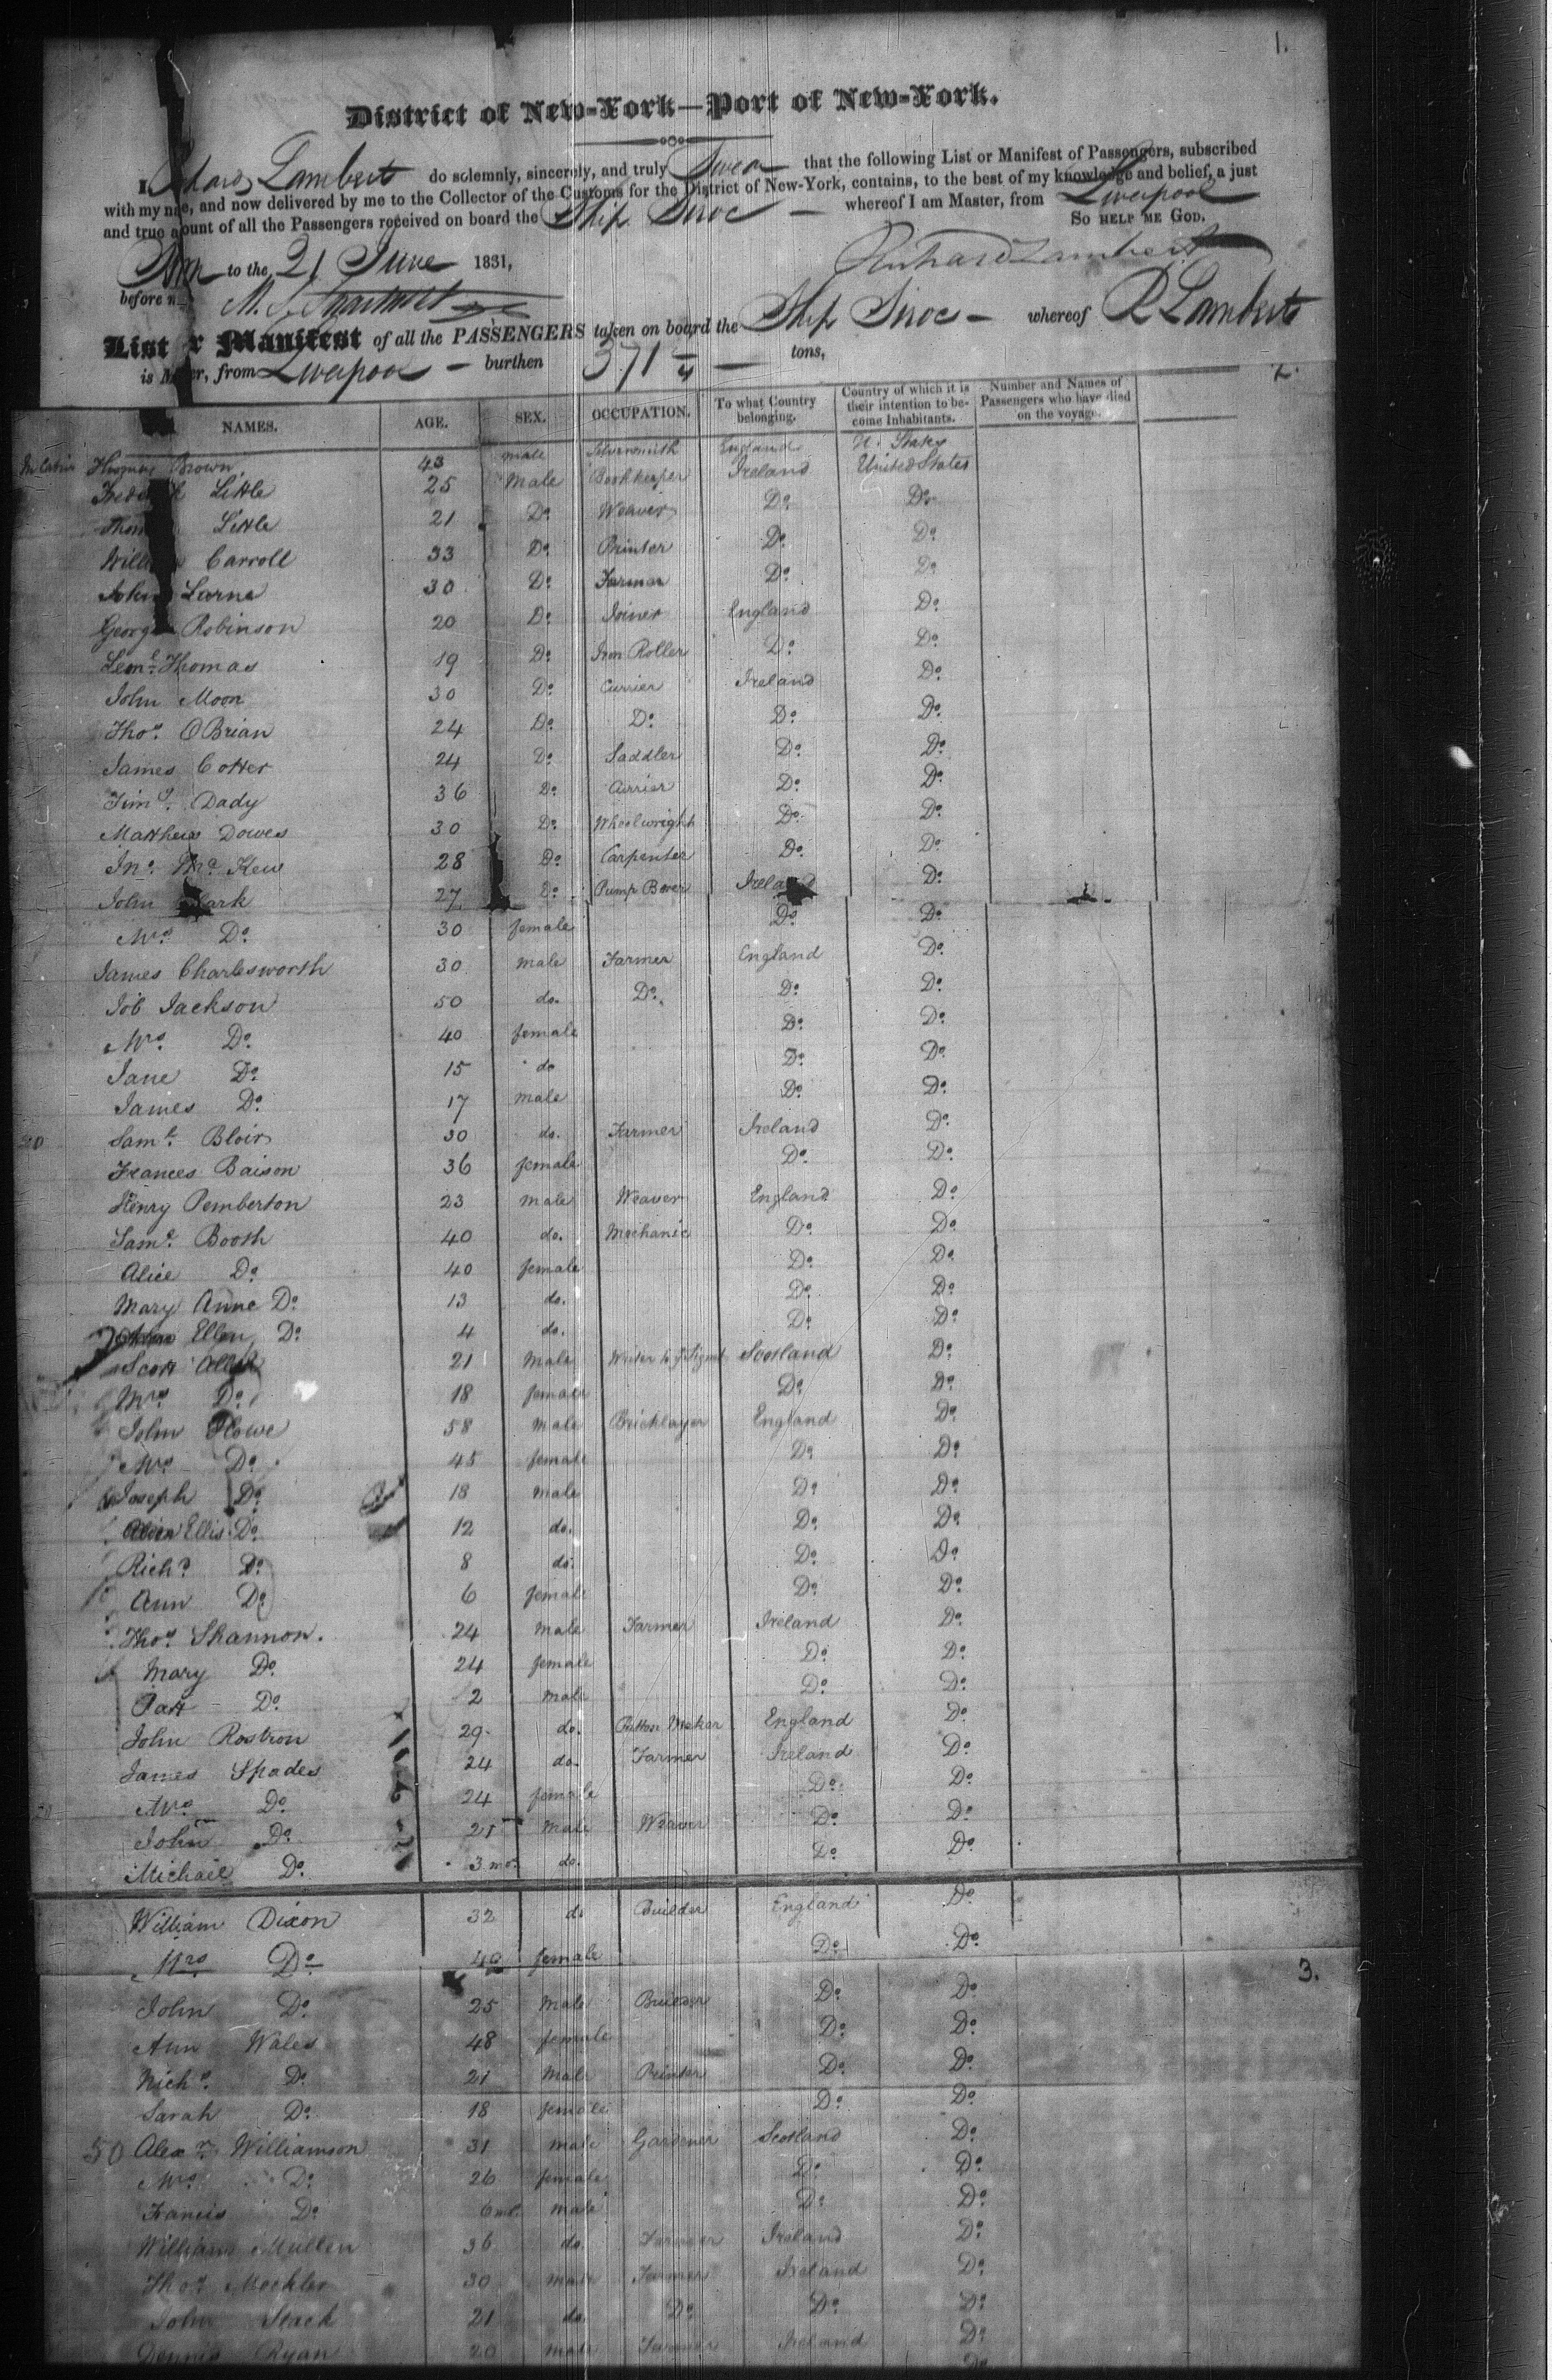 1.
District of New-York—Port of New-York.
I Richard Lambert do solemnly, sincerely, and truly Swear that the following List or Manifest of Passengers, subscribed
with my n e, and now delivered by me to the Collector of the Customs for the District of New-York, contains, to the best of my knowledge and belief, a just
and true a ount of all the Passengers received on board the Ship Siroc — whereof I am Master, from Liverpool
So help me God.
Sworn to the 21 June 1831,
Richard Lambert
before m
List or Manifest of all the PASSENGERS taken on board the Ship Siroc — whereof R Lambert
is M er, from Liverpool — burthen 371 — tons,
2.
NAMES. AGE. SEX. OCCUPATION. To what Country belonging. Country of which it is their intention to become Inhabitants. Number and Names of Passengers who have died on the voyage.
In Cabin Thomas Brown 43 male Silversmith England U. States
Frederick Little 25 Male Bookkeeper Ireland United States
Thom Little 21 Do. Weaver Do. Do.
William Carroll 33 Do. Printer Do. Do.
John Larne 30 Do. Farmer Do. Do.
George Robinson 20 Do. Joiner England Do.
Leml. Thomas 19 Do. Iron Roller Do. Do.
John Moon 30 Do. Currier Ireland Do.
Thos. OBrian 24 Do. Do. Do. Do.
James Cotter 24 Do. Saddler Do. Do.
Timy. Dady 36 Do. Currier Do. Do.
Matthew Dowes 30 Do. Wheelwright Do. Do.
Jno. Mc. Kew 28 Do. Carpenter Do. Do.
John Clark 27 Do. Pump Borer Ireland Do.
Mrs. Do. 30 female Do. Do.
James Charlesworth 30 male Farmer England Do.
Job Jackson 50 do. Do. Do. Do.
Mrs. Do. 40 female Do. Do.
Jane Do. 15 do Do. Do.
James Do. 17 male Do. Do.
20 Saml. Bloir 30 do. Farmer Ireland Do.
Frances Baison 36 female Do. Do.
Henry Pemberton 23 male Weaver England Do.
Saml. Booth 40 do. Mechanic Do. Do.
Alice Do. 40 female Do. Do.
Mary Anne Do. 13 do. Do. Do.
Ellen Do. 4 do. Do. Do.
Scott Allan 21 Male Writer to ye Signet Scotland Do.
Mrs Do. 18 female Do. Do.
John Howe 58 male Bricklayer England Do.
Mrs Do. 45 female Do. Do.
Joseph Do. 18 male Do. Do.
Ellis Do. 12 do. Do. Do.
Richd. Do. 8 do. Do. Do.
Ann Do. 6 female Do. Do.
Thos. Shannon. 24 male Farmer Ireland Do.
Mary Do. 24 female Do. Do.
Patt Do. 2 male Do. Do.
John Rostron 29 do. Button Maker England Do.
James Spades 24 do. Farmer Ireland Do.
Mrs. Do. 24 female Do. Do.
John Do. 25 male Weaver Do. Do.
Michael Do. 3 mos. do. Do. Do.
William Dixon 32 do Builder England Do.
Mrs Do. 40 female Do. Do.
3.
John Do. 25 Male Builder Do. Do.
Ann Wales 48 female Do. Do.
Nichs. Do. 21 Male Printer Do. Do.
Sarah Do. 18 female Do. Do.
50 Alexr. Williamson 31 male Gardener Scotland Do.
Mrs. Do. 26 female Do. Do.
Francis Do. 6 ms. male Do. Do.
William Mullen 36 do. Farmer Ireland Do.
Thos. Meckler 30 male Farmer Ireland Do.
John Stack 21 do. Do. Do. Do.
Dennis Ryan 20 male Farmer Ireland Do.
Do.